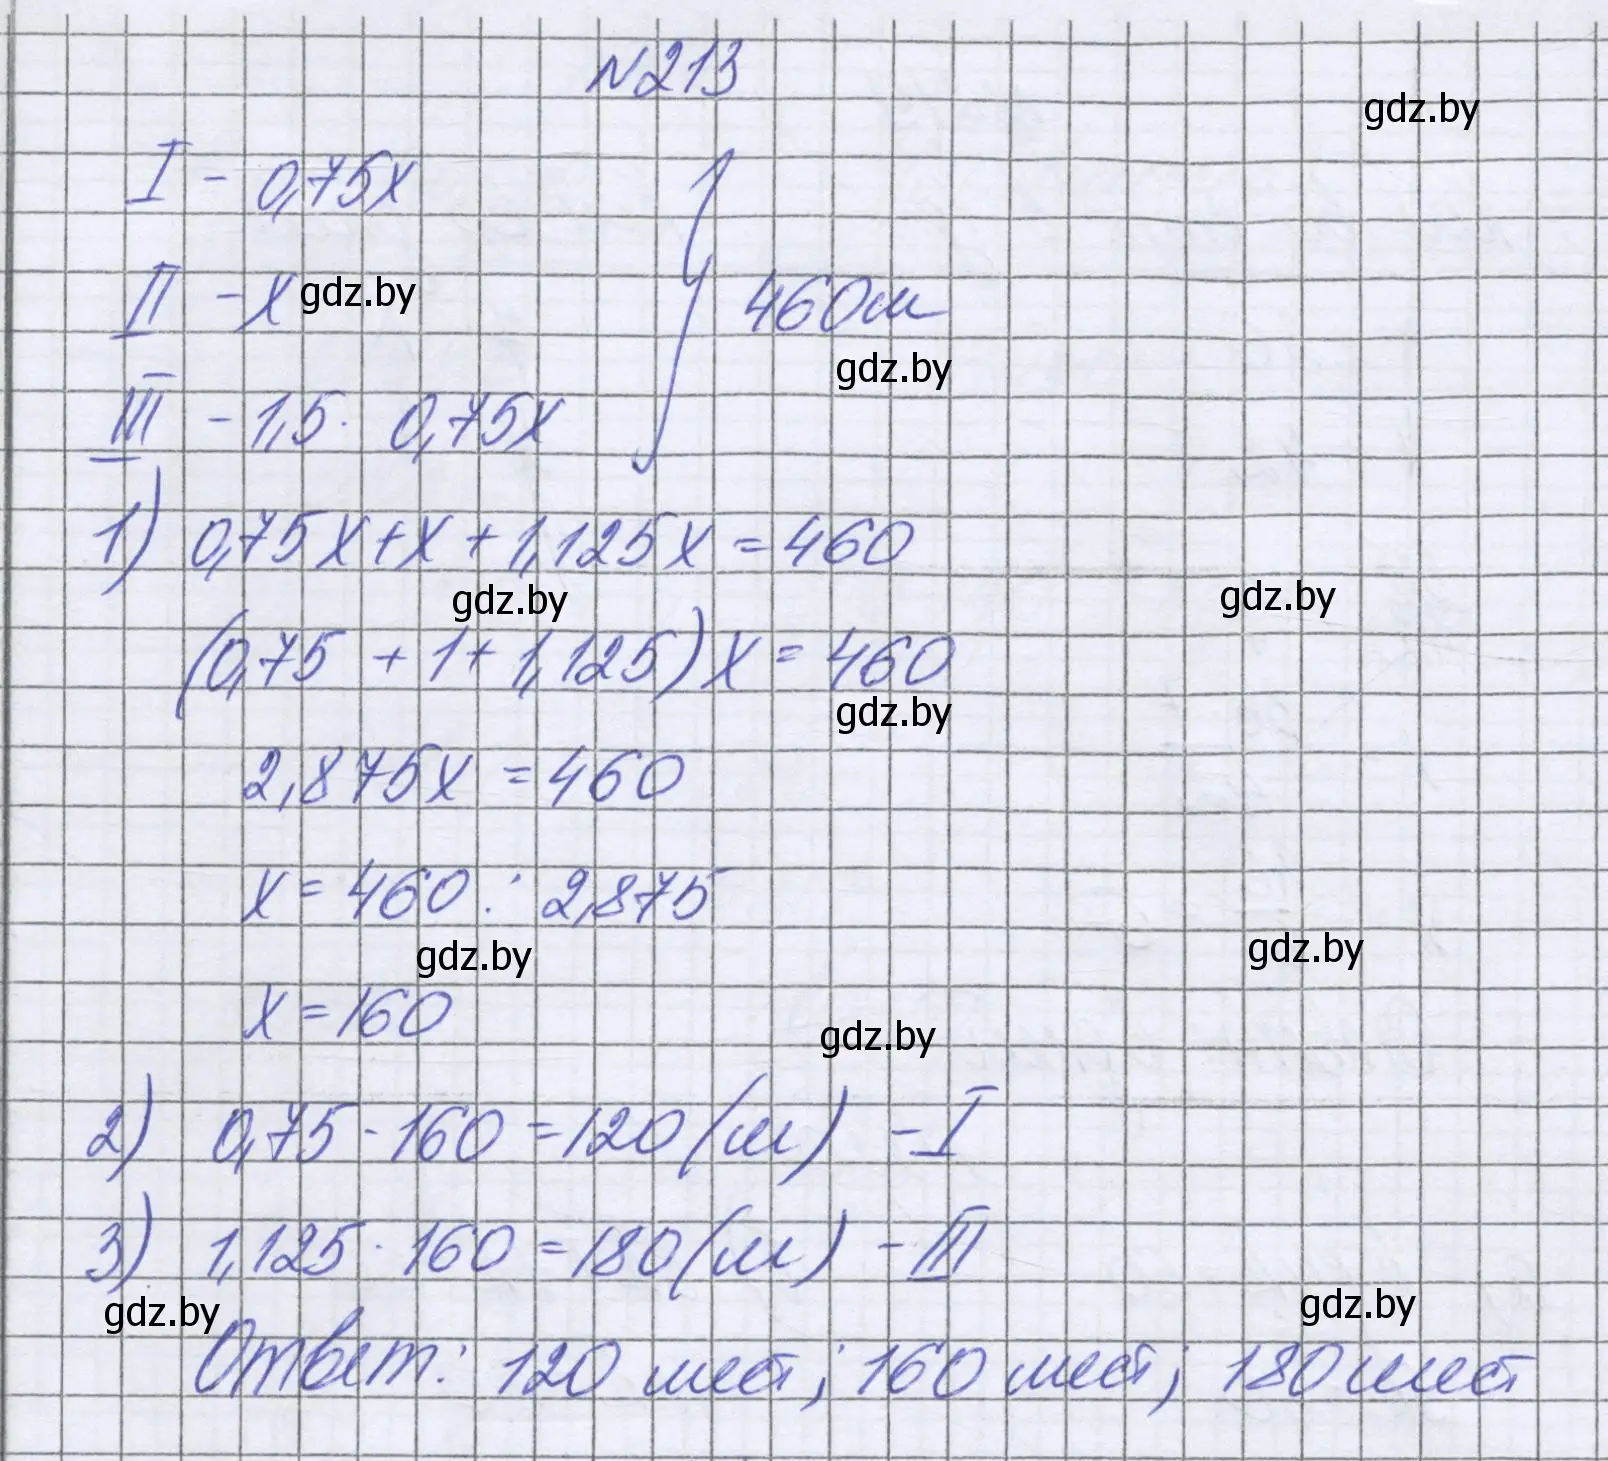 N213
gdz.by
I - 0,75x
II - x gdz.by
460м
gdz.by
III - 1,5 · 0,75x
1) 0,75x+x+1,125x=460
gdz.by
gdz.by
(0,75 + 1 + 1,125)x=460
gdz.by
2,875x=460
x=460 : 2,875
gdz.by
gdz.by
x=160
gdz.by
2) 0,75·160=120(м) - I
3) 1,125·160=180(м) - III
gdz.by
gdz.by
Ответ: 120 мест; 160 мест; 180 мест